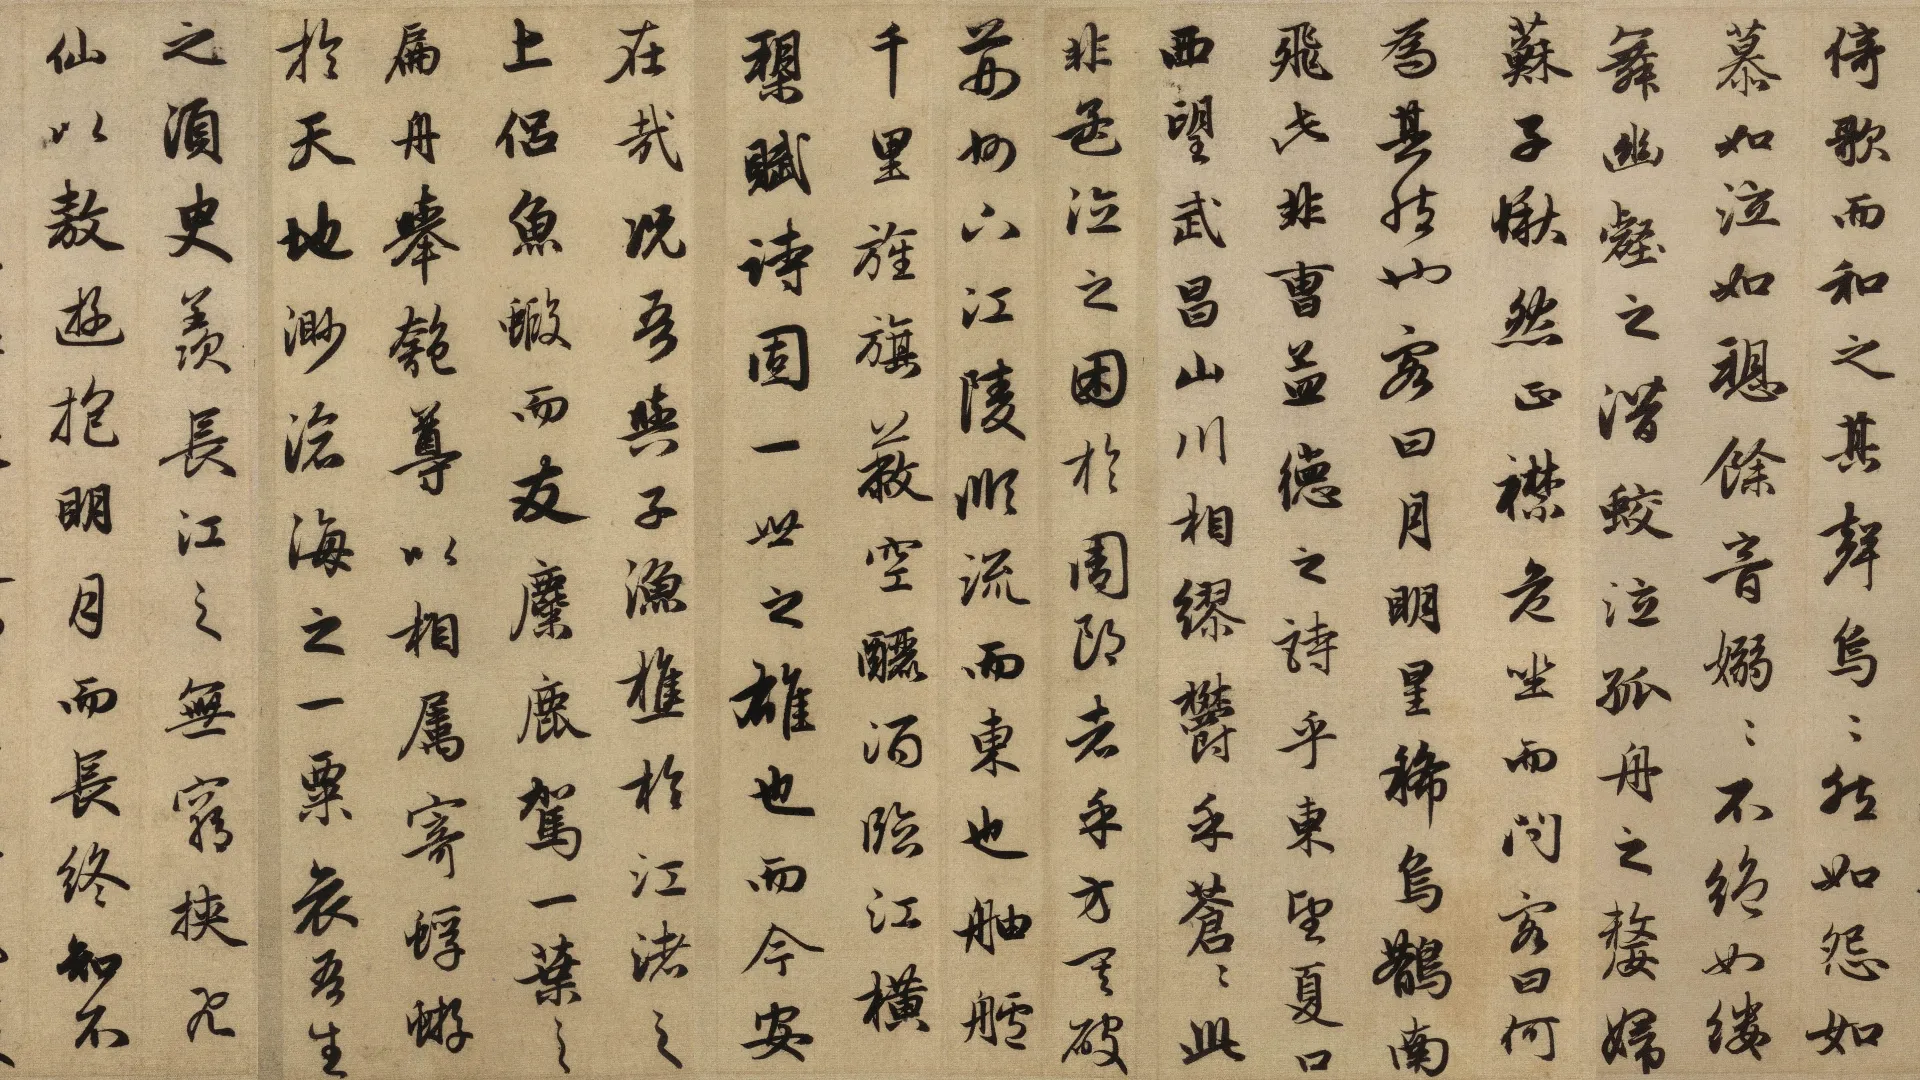 倚歌而和之其聲烏〻然如怨如
慕如泣如聽餘音嫋〻不絕如縷
舞幽壑之潛蛟泣孤舟之嫠婦
蘇子愀然正襟危坐而問客曰何
為其然也客曰月明星稀烏鵲南
飛此非曹孟德之詩乎東望夏口
西望武昌山川相繆鬱乎蒼〻此
非孟德之困於周郎者乎方其破
荊州下江陵順流而東也舳艫
千里旌旗蔽空釃酒臨江橫
槊賦詩固一世之雄也而今安
在哉況吾與子漁樵於江渚之
上侶魚蝦而友麋鹿駕一葉之
扁舟舉匏尊以相屬寄蜉蝣
於天地渺滄海之一粟哀吾生
之須臾羨長江之無窮挾飛
仙以敖遊抱明月而長終知不